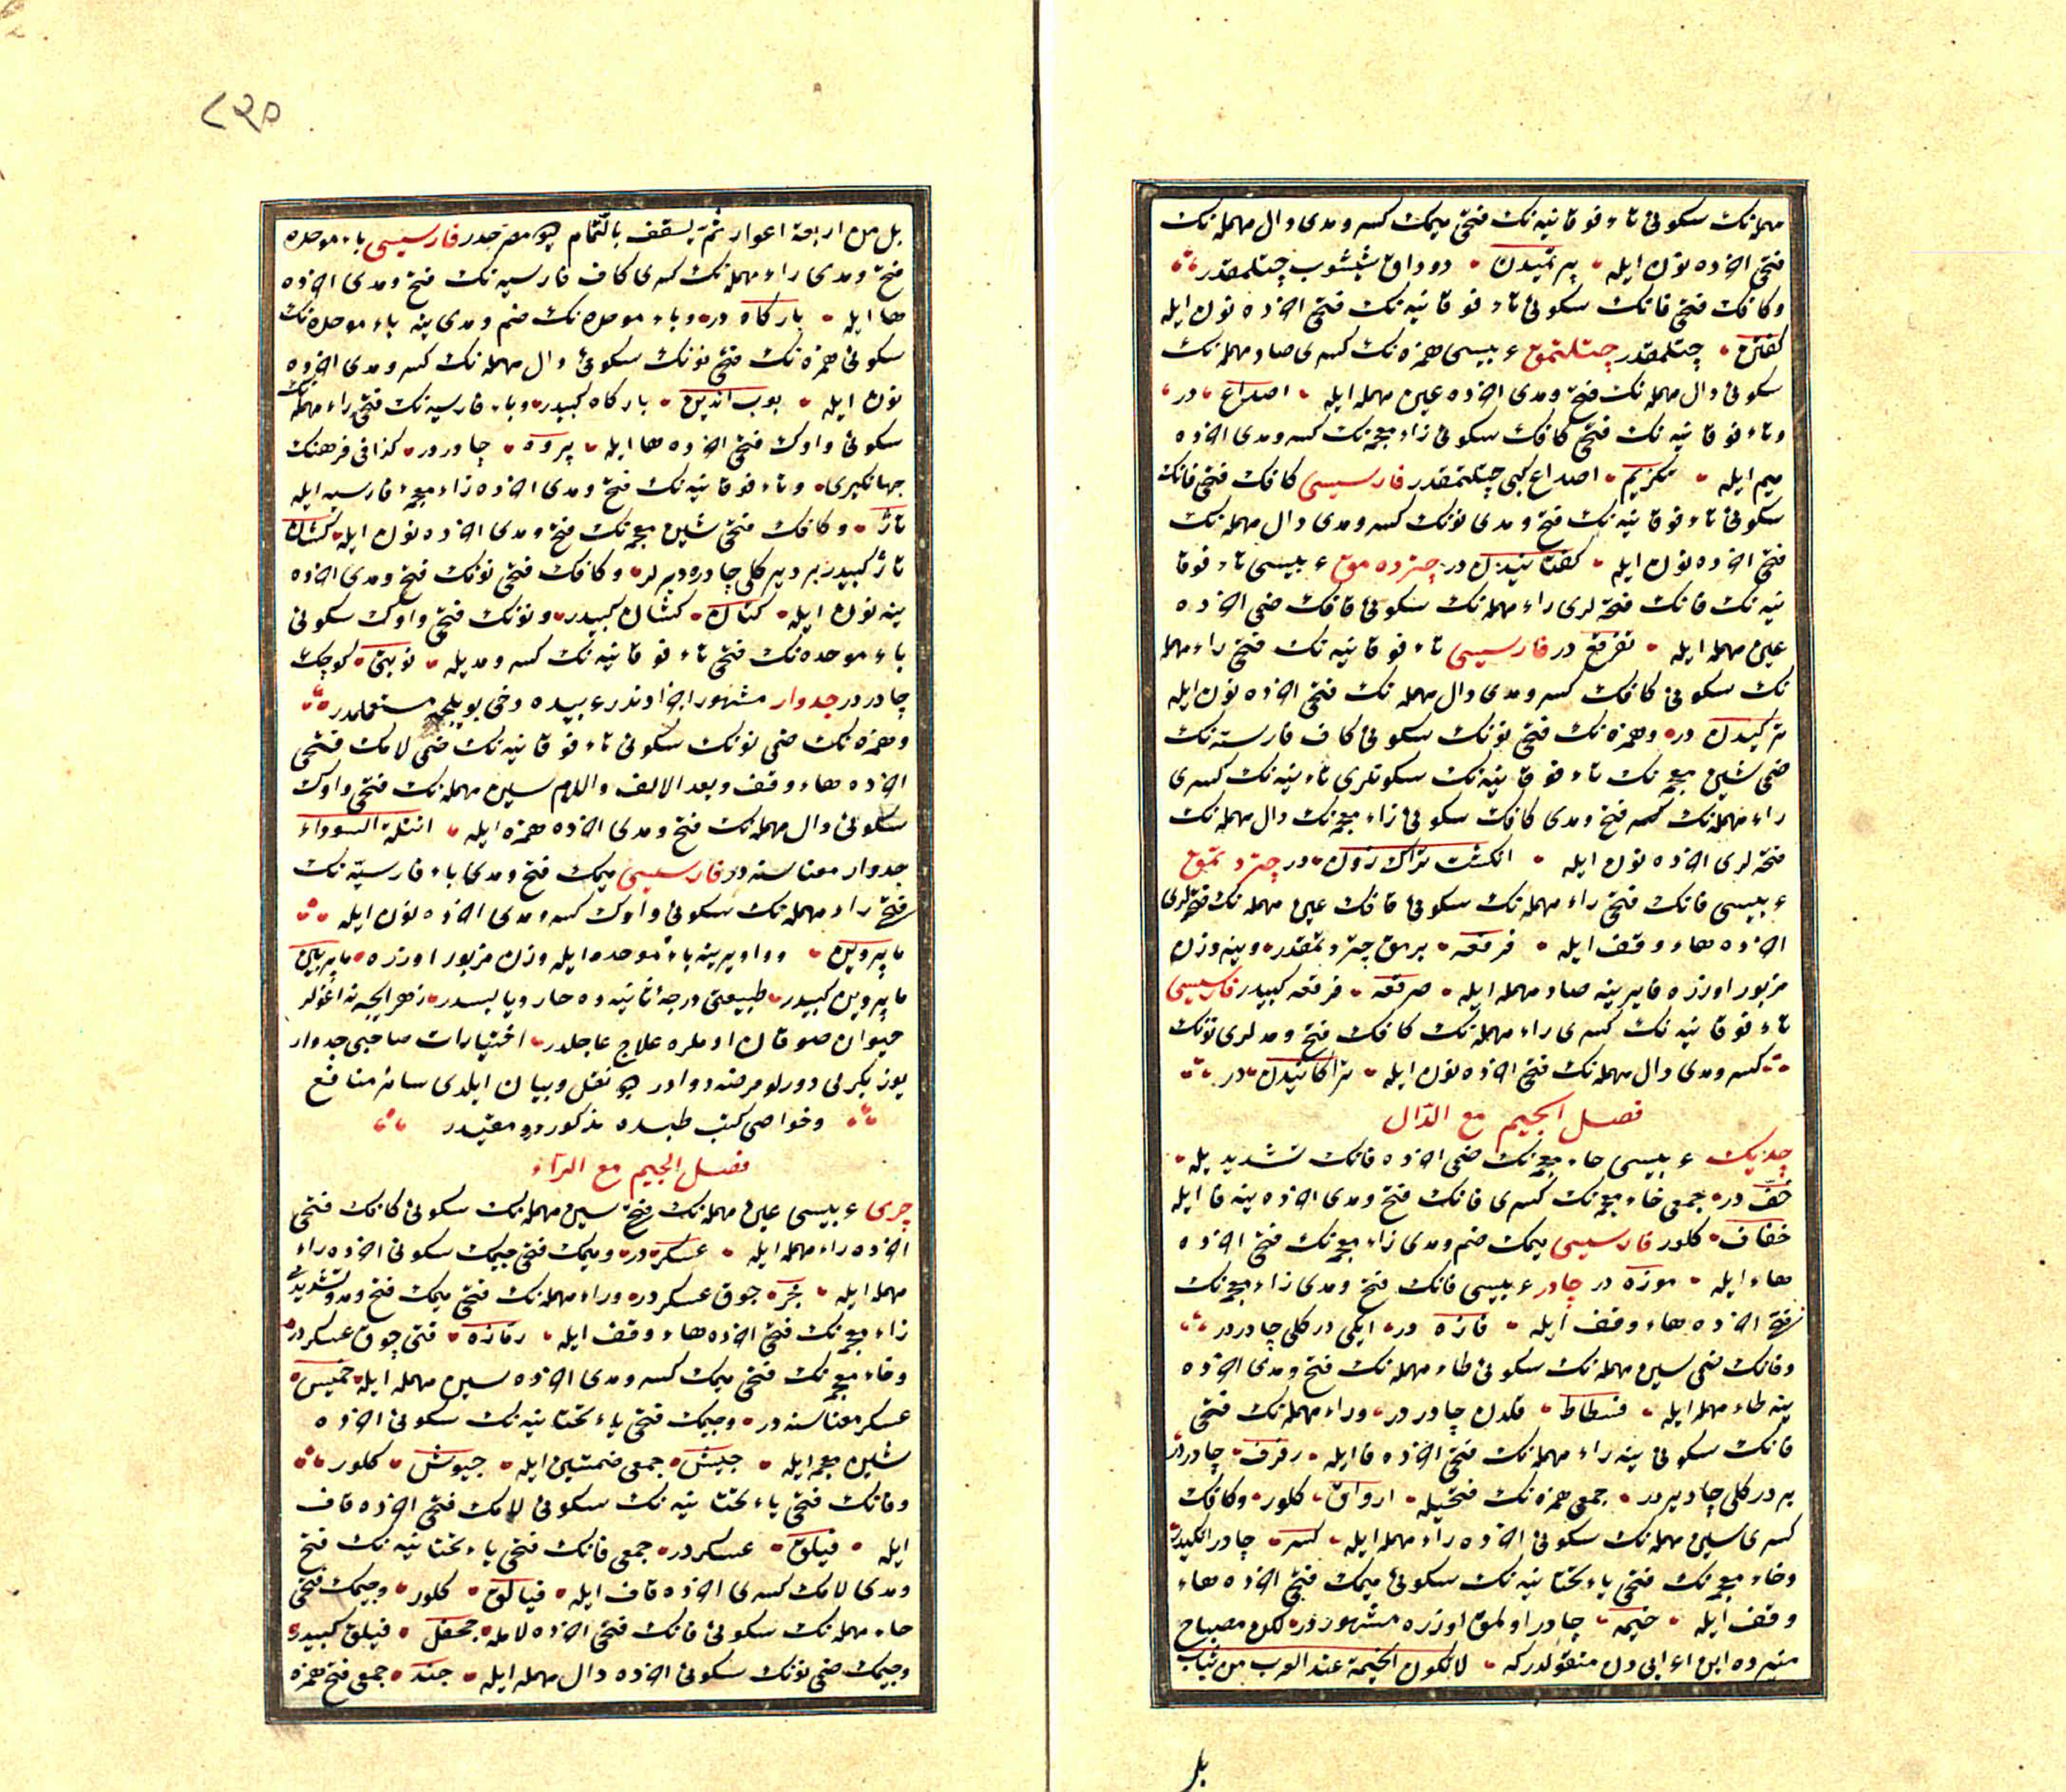 مهملەنك سكونى تاء فوقانیەنك فتحى میمك كسر و مدى دال مهملەنك
فتحى اخرده نون ایله • پرتمیدن • دوداق شیشوب چتلمقدر
وكافك فتحى فانك سكونى تاء فوقانیەنك فتحى اخرده نون ایله
كفتن • چتلمقدر چتلتمق عربیسى همزەنك كسرى صاد مهملەنك
سكونى دال مهملەنك فتح و مدى اخرده عین مهمله ایله • اصداع • در •
وتاء فوقانیەنك فتحى كافك سكونى زاء معجمەنك كسر و مدى اخرده
میم ایله • تكزیم • اصداع كبى چتلتمقدر فارسیسى كافك فتحى فانك
سكونى تاء فوقانیەنك فتح و مدى نونك كسر و مدى دال مهملەنك
فتحى اخرده نون ایله • كفتانیدن در چتردەمق عربیسى تاء فوقا
نیەنك فانك فتحەلرى راء مهملەنك سكونى قافك ضمى اخرده
عین مهمله ایله • تفرقع در فارسیسى تاء فوقانیەنك فتحى راء مهمله
نك سكونى كافك كسر و مدى دال مهملەنك فتحى اخرده نون ایله
تركیدن در • وهمزەنك فتحى نونك سكونى كاف فارسیەنك
ضمى شین معجمەنك تاء فوقانیەنك سكونلرى تاء ینەنك كسرى
راء مهملەنك فتح و مدى كافك سكونى زاء معجمەنك دال مهملەنك
فتحەلرى اخرده نون ایله • انكشت تراك زدن • در چتردتمق
عربیسى فانك فتحى راء مهملەنك سكونى قافك عین مهملەنك فتحەلرى
اخرده هاء وقف ایله • فرقعه • پرمق چتردتمقدر • وینه وزن
مزبور اوزره فا یرینه صاد مهمله ایله • صرقعه • فرقعه كبیدر فارسیسى
تاء فوقانیەنك كسرى راء مهملەنك كافك فتح و مدلرى نونك
كسر و مدى دال مهملەنك فتحى اخرده نون ایله • تراكانیدن • در
فصل الجیم مع الدّال
چدیك عربیسى خاء معجمەنك ضمى اخرده فانك تشدیدیله •
خفّ در • جمعى خاء معجمەنك كسرى فانك فتح و مدى اخرده ینه فا ایله
خفاف • كلور فارسیسى میمك ضم و مدى زاء معجمەنك فتحى اخرده
هاء ایله • موزه در چادر عربیسى فانك فتح و مدى زاء معجمەنك
فتحى اخرده هاء وقف ایله • فازه در • ایكى دركلى چادردر
وفانك ضمى سین مهملەنك سكونى طاء مهملەنك فتح و مدى اخرده
ینه طاء مهمله ایله • فسطاط • قلدن چادردر • وراء مهملەنك فتحى
فانك سكونى ینه راء مهملەنك فتحى اخرده فا ایله • رفرف • چادردر
بر دركلى چادیردر • جمعى همزەنك فتحیله • ارواق • كلور • وكافك
كسرى سین مهملەنك سكونى اخرده راء مهمله ایله • كسر • چادر
وخاء معجمەنك فتحى یاء تحتانیەنك سكونى میمك فتحى اخرده هاء
وقف ایله • خیمه • چادر اولمق اوزره مشهوردر • لكن مصباح
منیرده ابن اعرابیدن منقولدركه • لا تكون الخیمة عند العرب من ثیاب
بل
٨٣٥
بل من اربعة اعواد ثمّ یسقف بالثّمام دیو مصرحدر فارسیسى باء موحده
فتح و مدى راء مهملەنك كسرى كاف فارسیەنك فتح و مدى اخرده
ها ایله • باركاه در • وباء موحدەنك ضم و مدى ینه باء موحدەنك
سكونى همزەنك فتحى نونك سكونى دال مهملەنك كسر و مدى اخرده
نون ایله • بوب اندین • باركاه كبیدر • وباء فارسیەنك فتحى راء مهملەنك
سكونى واوك فتحى اخرده ها ایله • پروه • چادردر • كذا فى فرهنك
جهانكیرى • وتاء فوقانیەنك فتح و مدى اخرده زاء معجمۀ فارسیه ایله
تاژ • وكافك فتحى شین معجمەنك فتح و مدى اخرده نون ایله • كشان
تاژ كبیدر بر دیركلى چادره دیرلر • وكافك فتحى نونك فتح و مدى اخرده
ینه نون ایله • كنان • كشان كبیدر • ونونك فتحى واوك سكونى
باء موحدەنك فتحى تاء فوقانیەنك كسر و مدیله • نوبتى • كوچك
چادردر جدوار مشهور اجزاوندر عربیده دخى بویلجه مستعملدر
وهمزەنك ضمى نونك سكونى تاء فوقانیەنك ضمى لامك فتحى
اخرده هاء وقف وبعد الالف واللام سین مهملەنك فتحى واوك
سكونى دال مهملەنك فتح و مدى اخرده همزه ایله • انتلة السوداء
جدوار معناسنه در فارسیسى میمك فتح و مدى باء فارسیەنك
فتحى راء مهملەنك سكونى واوك كسر و مدى اخرده نون ایله
ماپروین • وواو یرینه باء موحده ایله وزن مزبور اوزره • ماپربین
ماپروین كبیدر • طبیعتى درجۀ ثانیه ده حار ویابسدر •
حیوان صوقان ادملره علاج عاجلدر • اختیارات صاحبى جدوار
یوز یكرمى دورلو مرضه دوادر دیو نقل وبیان ایلدى سائر منافع
وخواصى كتب طبده مذكور و مقیددر
فصل الجیم مع الرّاء
چرى عربیسى عین مهملەنك فتحى سین مهملەنك سكونى كافك فتحى
اخرده راء مهمله ایله • عسكر • در • ومیمك فتحى جیمك سكونى اخرده راء
مهمله ایله • مجر • چوق عسكردر • وراء مهملەنك فتحى میمك فتح و مد وتشدیدى
زاء معجمەنك فتحى اخرده هاء وقف ایله • رمّازه • قتى چوق عسكردر
وخاء معجمەنك فتحى میمك كسر و مدى اخرده سین مهمله ایله • خمیس •
عسكر معناسنه در • وجیمك فتحى یاء تحتانیەنك سكونى اخرده
شین معجمه ایله • جیش • جمعى ضمتین ایله • جیوش • كلور
وفانك فتحى یاء تحتانیەنك سكونى لامك فتحى اخرده قاف
ایله • فیلق • عسكردر • جمعى فانك فتحى یاء تحتانیەنك فتح
ومدى لامك كسرى اخرده قاف ایله • فیالق • كلور • وجیمك فتحى
حاء مهملەنك سكونى فانك فتحى اخرده لامله • جحفل • فیلق كبیدر
وجیمك ضمى نونك سكونى اخرده دال مهمله ایله • جند • جمعى فتح همزه